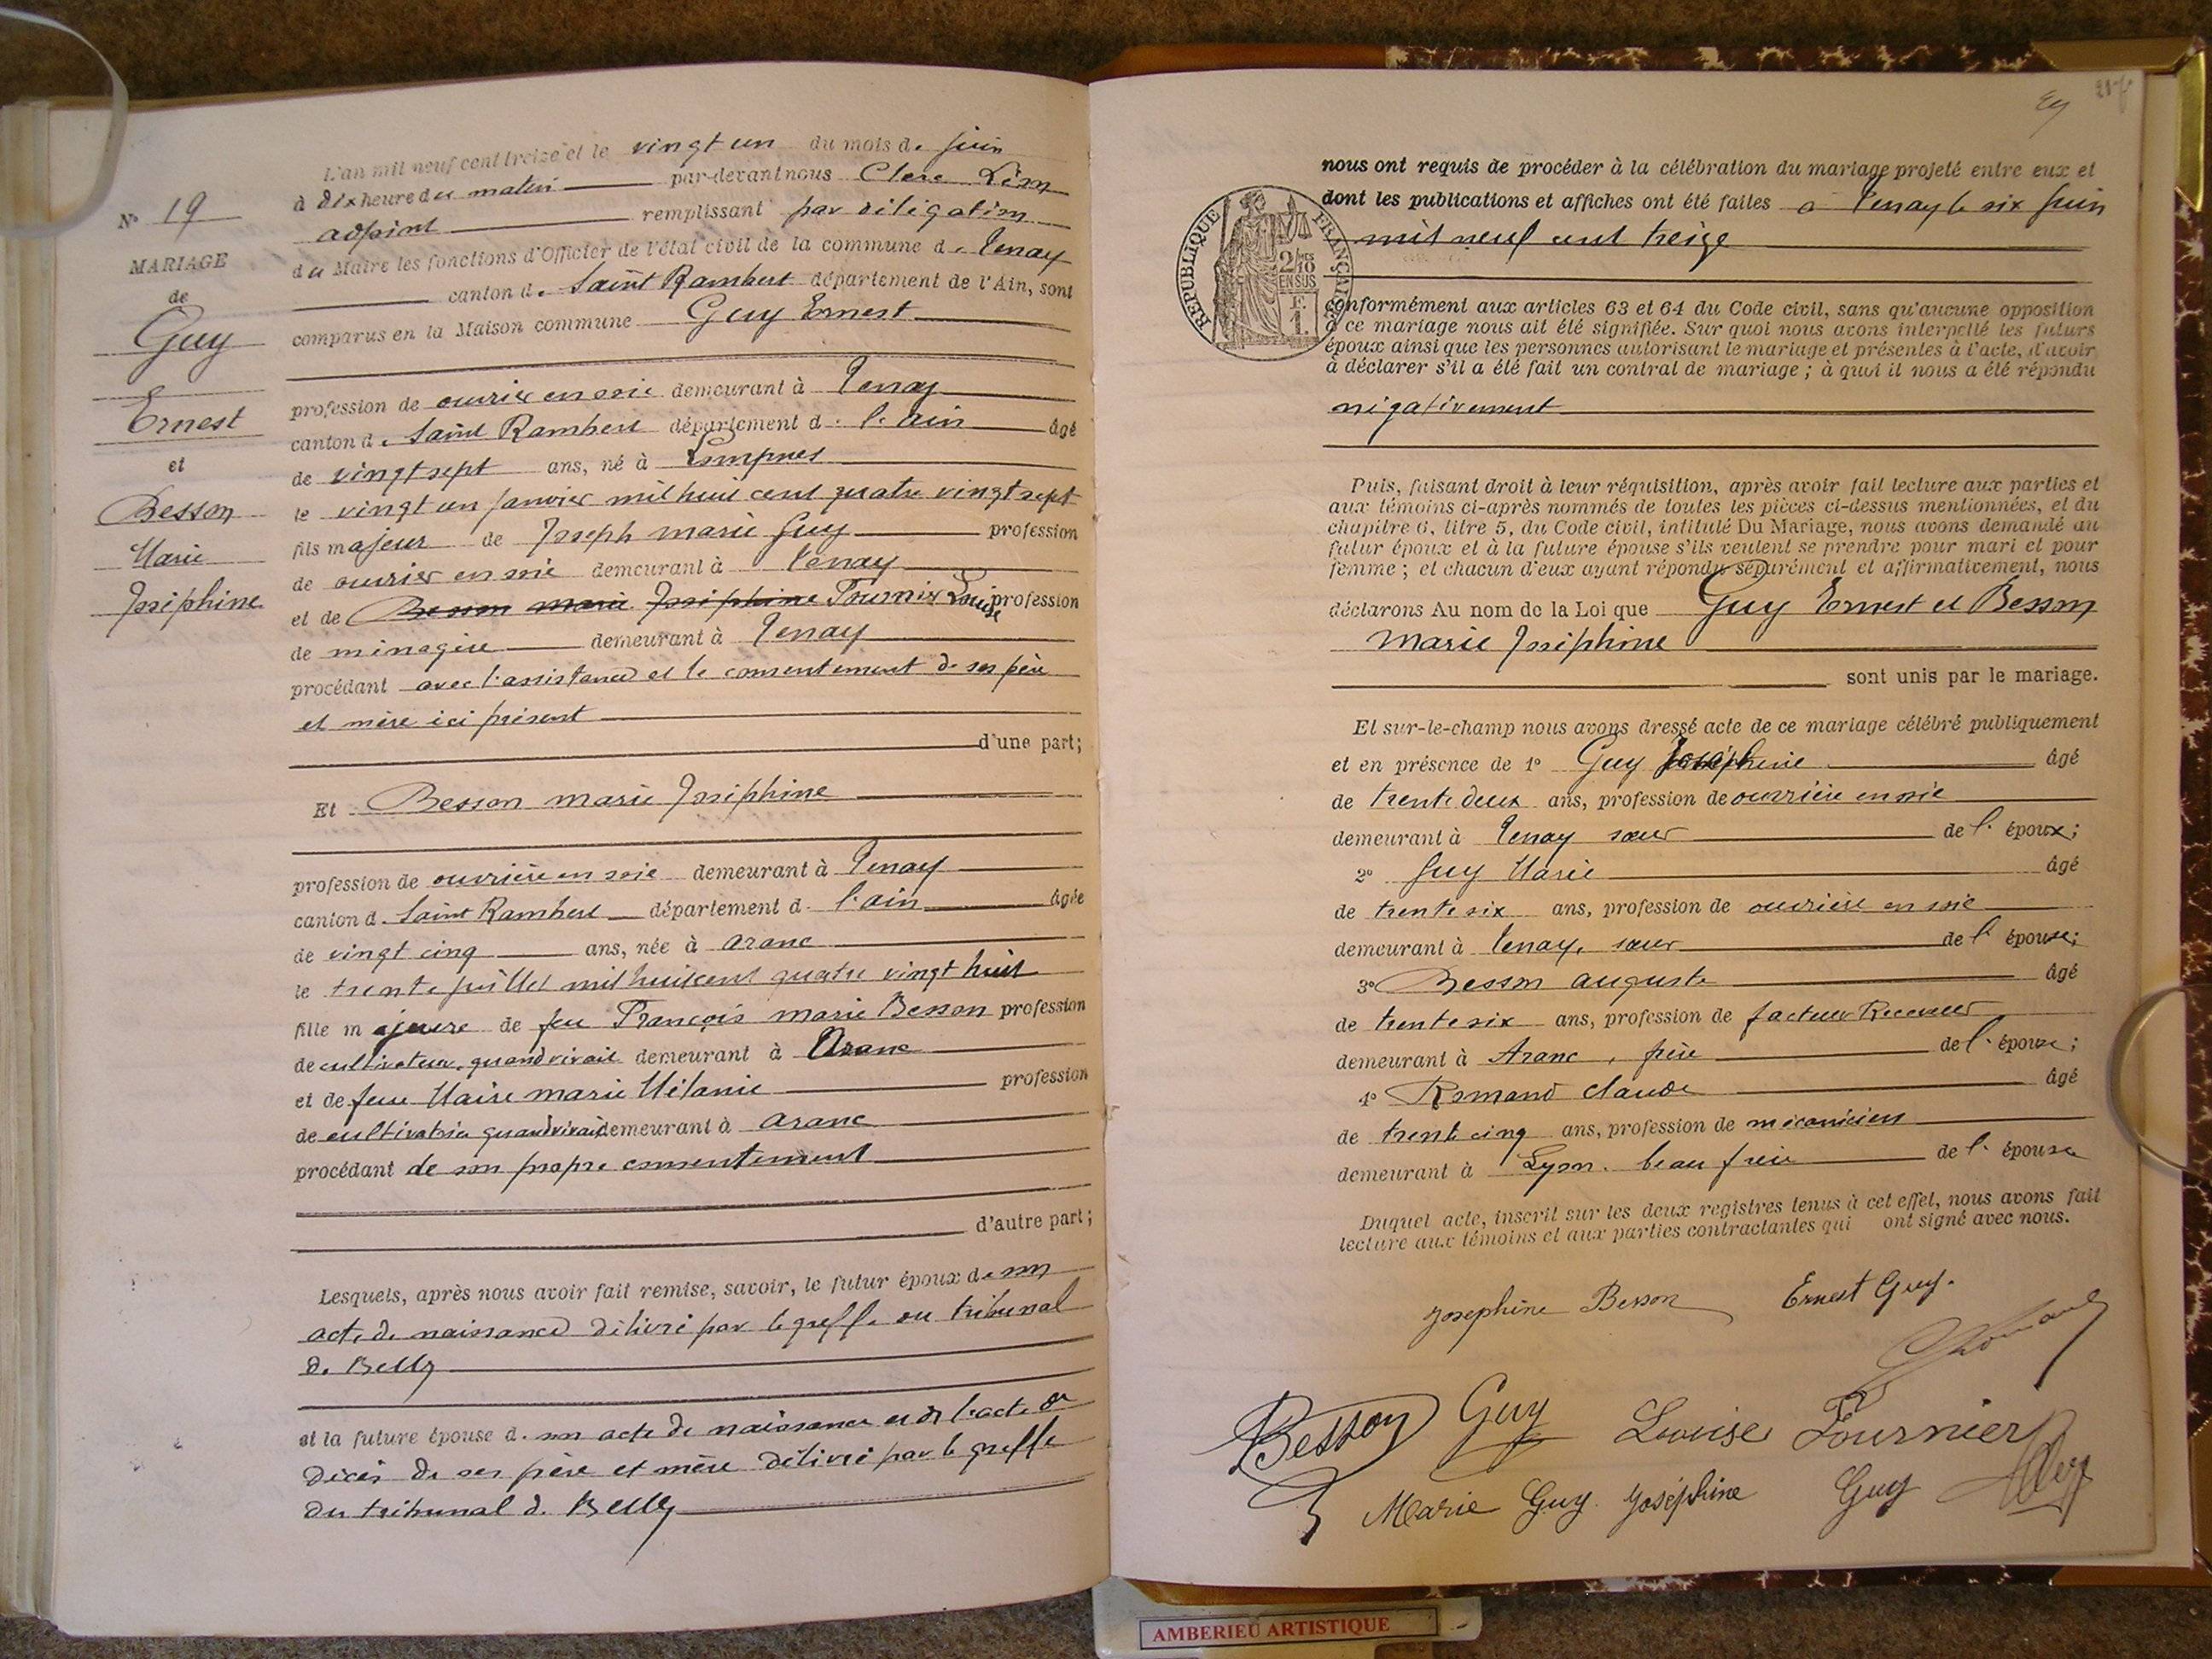 N° 19
MARIAGE
de
Guy
Ernest
et
Besson
Marie
Joséphine
L'an mil neuf cent treize et le vingt un du mois de juin
à dix heure du matin par-devant nous Clerc Léon
adjoint remplissant par déligation
du Maire les fonctions d'Officier de l'état civil de la commune de Tenay
canton de Saint Rambert département de l'Ain, sont
comparus en la Maison commune Guy Ernest
profession de ouvrier en soie demeurant à Tenay
canton de Saint Rambert département de l'ain âgé
de vingt sept ans, né à Lompnes
le vingt un janvier mil huit cent quatre vingt sept
fils majeur de Joseph marie Guy profession
de ouvrier en soie demeurant à Tenay
et de Besson marie Joséphine Fournier Louise profession
de ménagère demeurant à Tenay
procédant avec l'assistance et le consentement de ses père
et mère ici présent
d'une part;
Et Besson marie Joséphine
profession de ouvrière en soie demeurant à Tenay
canton d. Saint Rambert département d. l'ain âgée
de vingt cinq ans, née à aranc
le trente juillet mil huit cent quatre vingt huit
fille majeure de feu François marie Besson profession
de cultivateur, quand vivait demeurant à Aranc
et de feue Maire marie Mélanie profession
de cultivatrice quand vivait demeurant à aranc
procédant de son propre consentement
d'autre part;
Lesquels, après nous avoir fait remise, savoir, le futur époux de son
acte de naissance délivré par le greffe du tribunal
de Belley
et la future épouse d. son acte de naissance et de l'acte de
décès de ses père et mère délivré par le greffe
du tribunal de Belley
29
nous ont requis de procéder à la célébration du mariage projeté entre eux et
dont les publications et affiches ont été faites a Tenay le six juin
mil neuf cent treize
RÉPUBLIQUE FRANÇAISE
2/10 EN SUS
F. 1.
conformément aux articles 63 et 64 du Code civil, sans qu'aucune opposition
à ce mariage nous ait été signifiée. Sur quoi nous avons interpellé les futurs
époux ainsi que les personnes autorisant le mariage et présentes à l'acte, d'avoir
à déclarer s'il a été fait un contrat de mariage; à quoi il nous a été répondu
négativement
Puis, faisant droit à leur réquisition, après avoir fait lecture aux parties et
aux témoins ci-après nommés de toutes les pièces ci-dessus mentionnées, et du
chapitre 6, titre 5, du Code civil, intitulé Du Mariage, nous avons demandé au
futur époux et à la future épouse s'ils veulent se prendre pour mari et pour
femme; et chacun d'eux ayant répondu séparément et affirmativement, nous
déclarons Au nom de la Loi que Guy Ernest et Besson
Marie Joséphine
sont unis par le mariage.
Et sur-le-champ nous avons dressé acte de ce mariage célébré publiquement
et en présence de 1° Guy Joséphine âgé
de trente deux ans, profession de ouvrière en soie
demeurant à Tenay sœur de l' époux;
2° Guy Marie âgé
de trente six ans, profession de ouvrière en soie
demeurant à Tenay, sœur de l' épouse;
3° Besson auguste âgé
de trente six ans, profession de facteur Receveur
demeurant à Aranc, frère de l' épouse;
4° Romand claude âgé
de trente cinq ans, profession de mécanicien
demeurant à Lyon. beau frère de l' épouse
Duquel acte, inscrit sur les deux registres tenus à cet effet, nous avons fait
lecture aux témoins et aux parties contractantes qui ont signé avec nous.
Josephine Besson Ernest Guy.
Besson Guy Louise Fournier
Marie Guy Joséphine Guy
AMBERIEU ARTISTIQUE